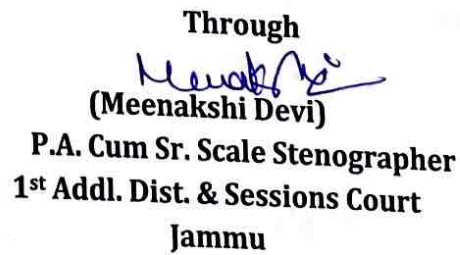 Through
(Meenakshi Devi)
P.A. Cum Sr. Scale Stenographer
1st Addl. Dist. & Sessions Court
Jammu